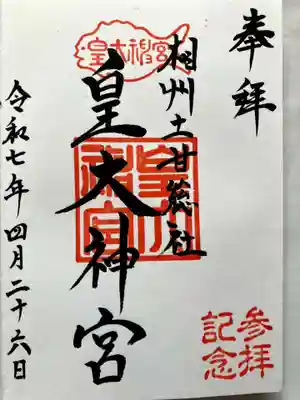 奉拝
相州土甘総社
皇大神宮
皇大神宮
令和七年四月二十六日
参拝
記念